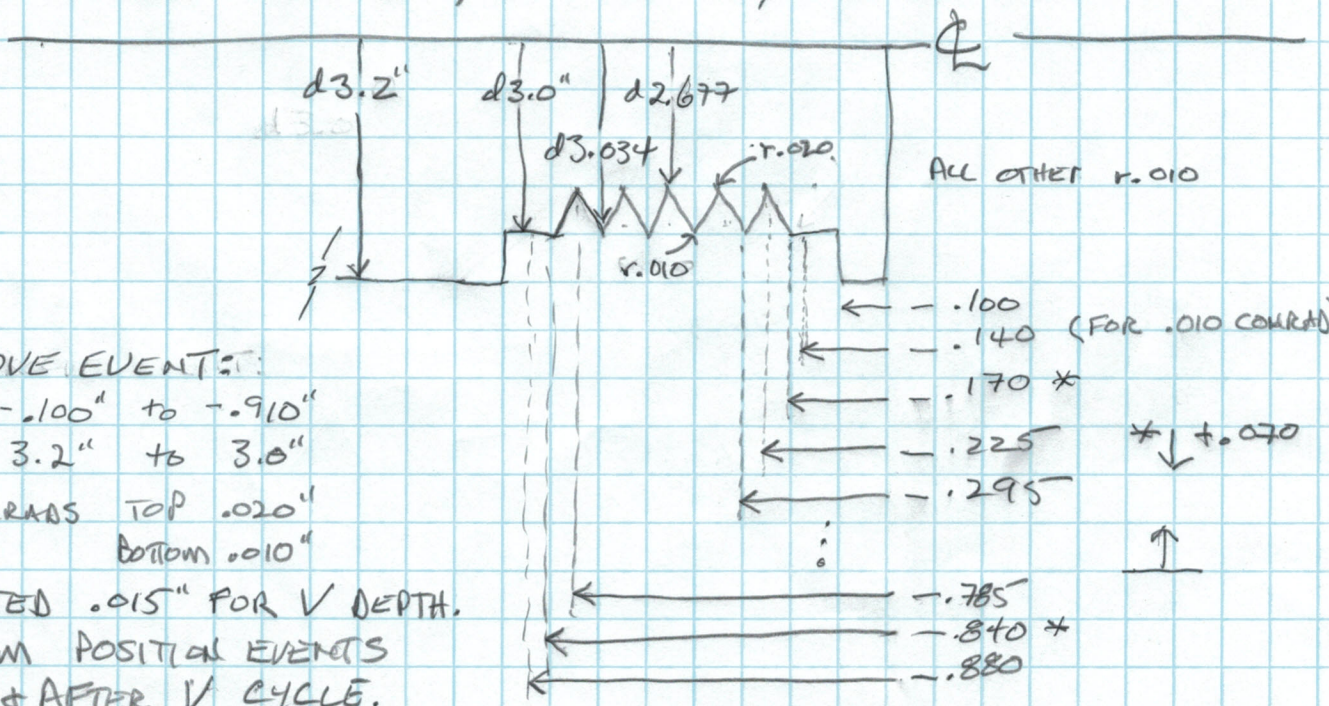 ℄
d3.2" d3.0" d2.677
d3.034 r.020
ALL OTHER r.010
r.010
- .100
- .140 (FOR .010 COMRAD
- .170 *
- .225 * ↓ +.070
- .295
-.785
-.840 *
-.880
OVE EVENT:
-.100" to -.910"
3.2" to 3.0"
RADS TOP .020"
BOTTOM .010"
TED .015" FOR V DEPTH.
M POSITION EVENTS
& AFTER V CYCLE.